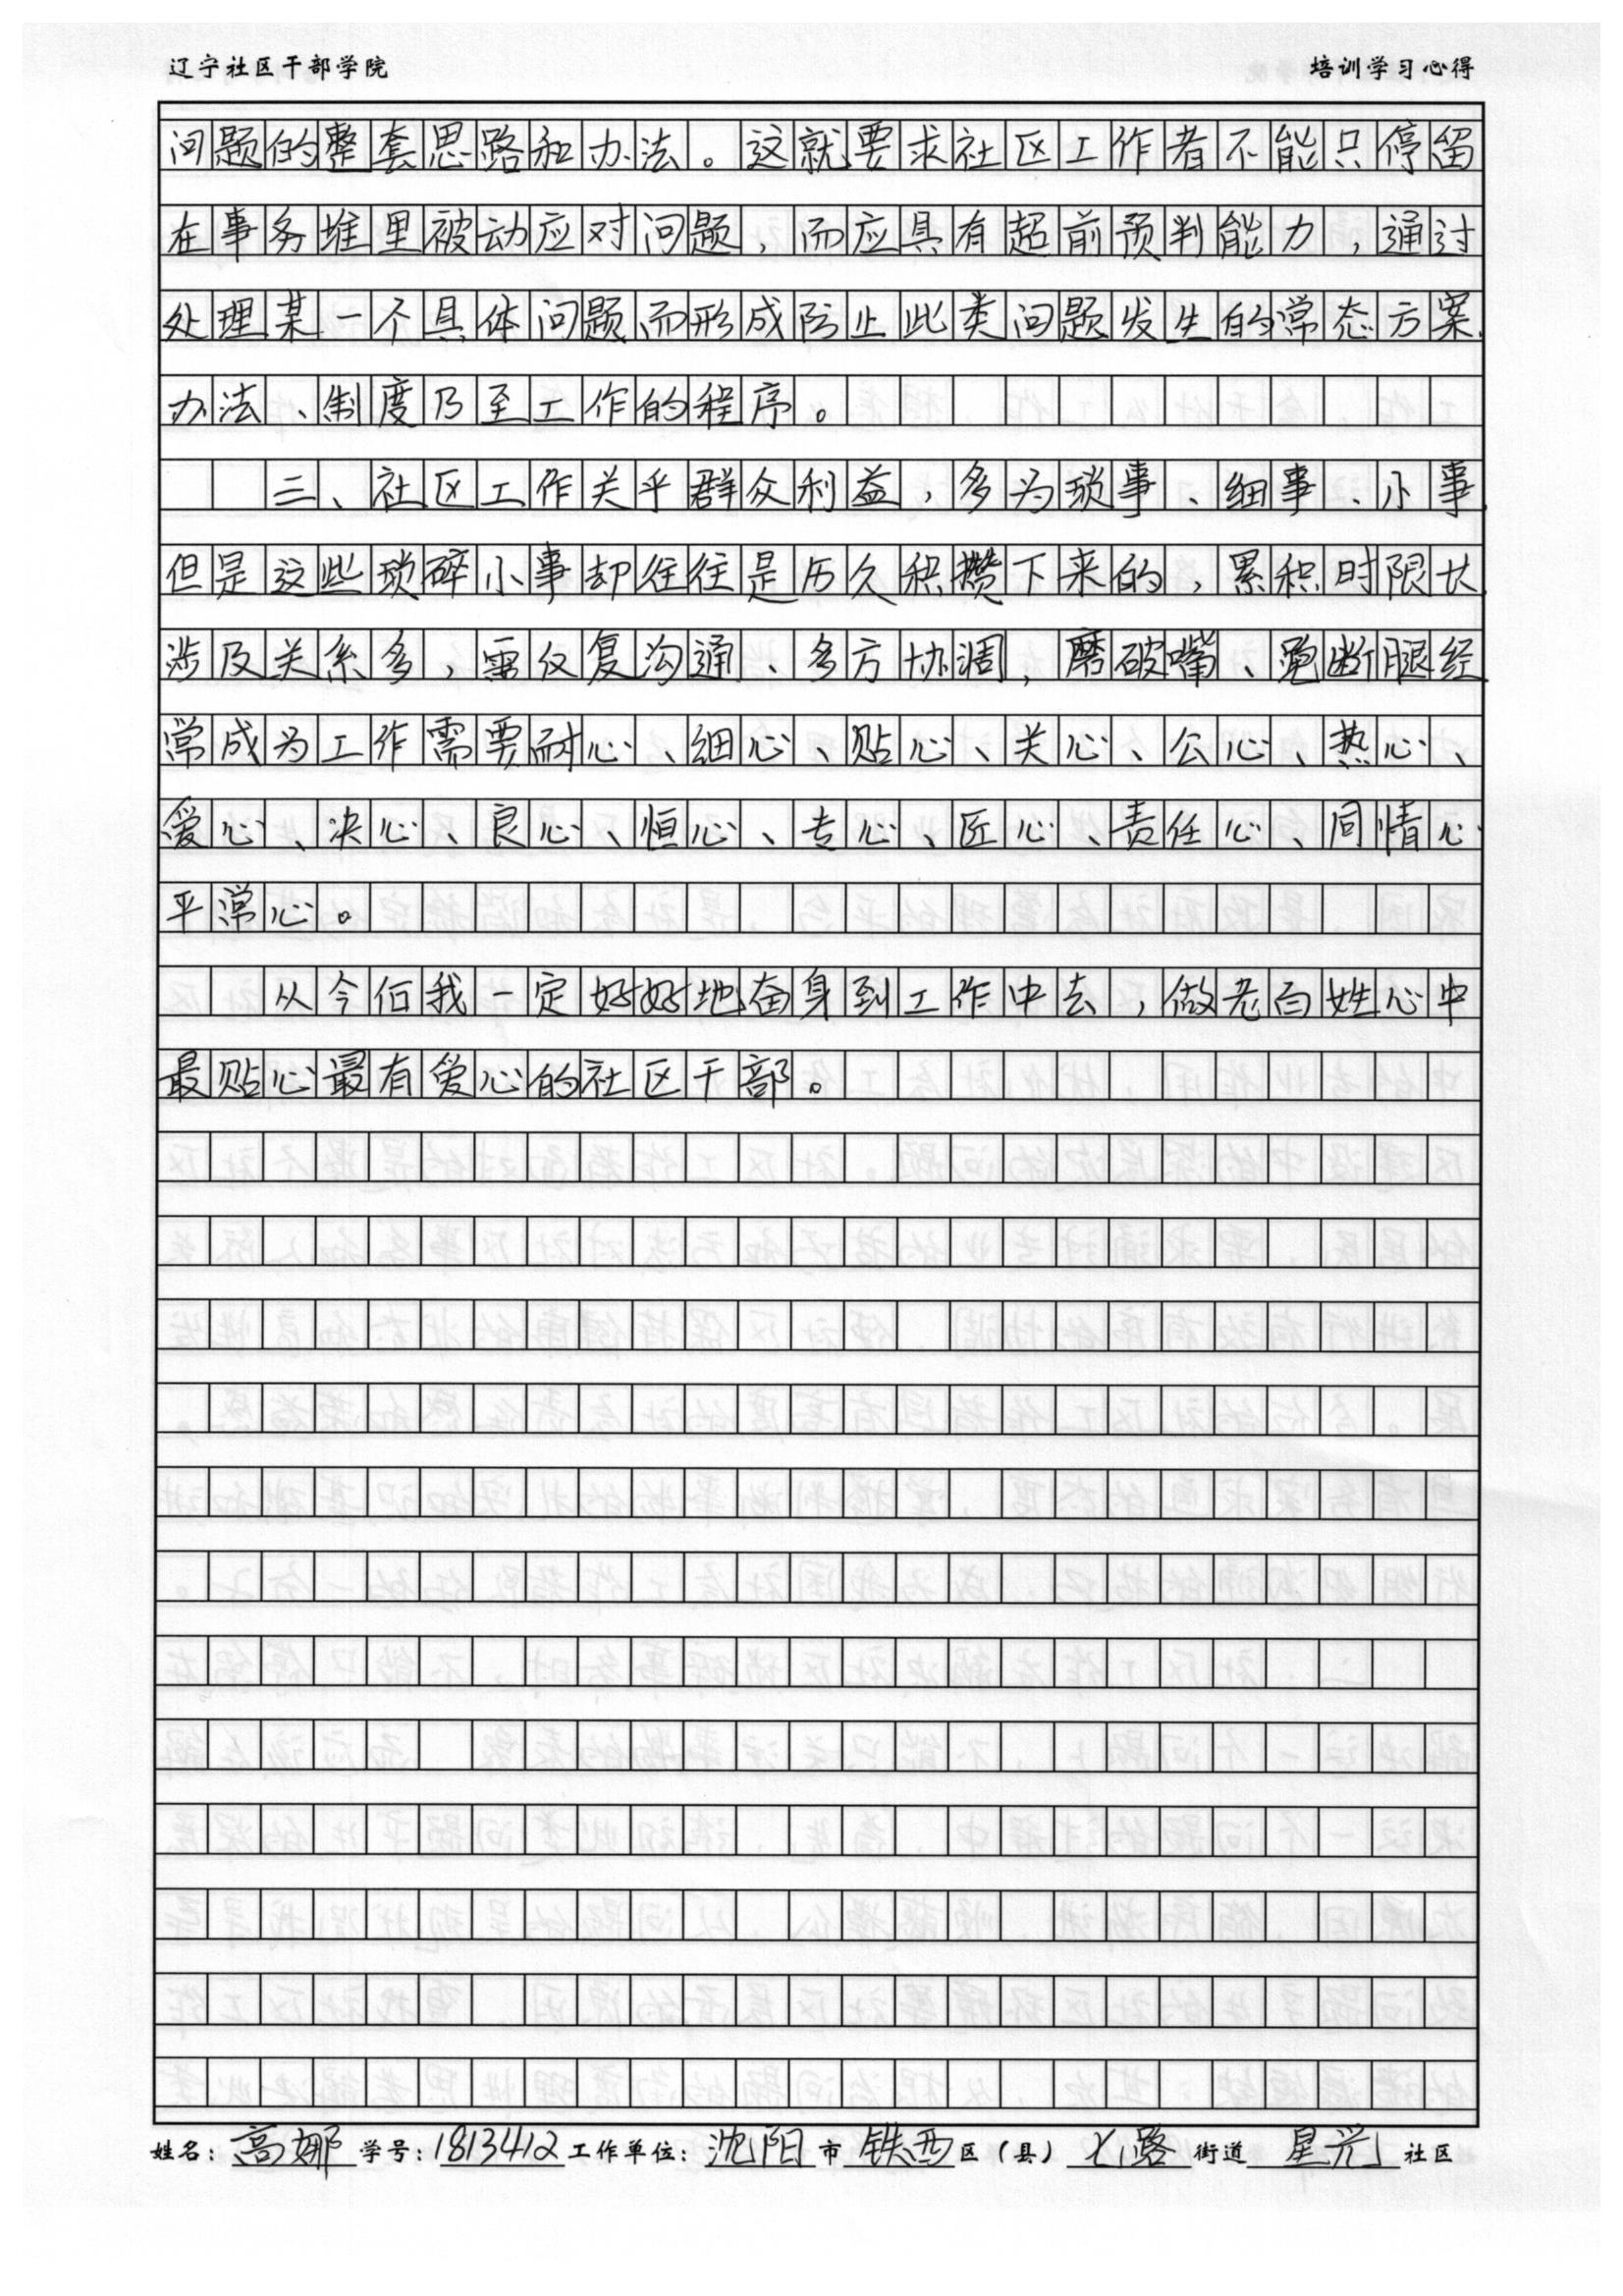 辽宁社区干部学院 培训学习心得
问题的整套思路和办法。这就要求社区工作者不能只停留
在事务堆里被动应对问题,而应具有超前预判能力,通过
处理某一个具体问题而形成防止此类问题发生的常态方案、
办法、制度乃至工作的程序。
三、社区工作关乎群众利益,多为琐事、细事、小事,
但是这些琐碎小事却往往是历久积攒下来的,累积时限长,
涉及关系多、需仅复沟通、多方协调,磨破嘴、跑断腿经
常成为工作需要耐心、细心、贴心、关心、公心、热心、
爱心、决心、良心、恒心、专心、匠心、责任心、同情心、
平常心。
从今后我一定好好地奋身到工作中去,做老百姓心中
最贴心最有爱心的社区干部。
姓名:高娜 学号:1813412 工作单位:沈阳市铁西区(县)七路街道星光社区